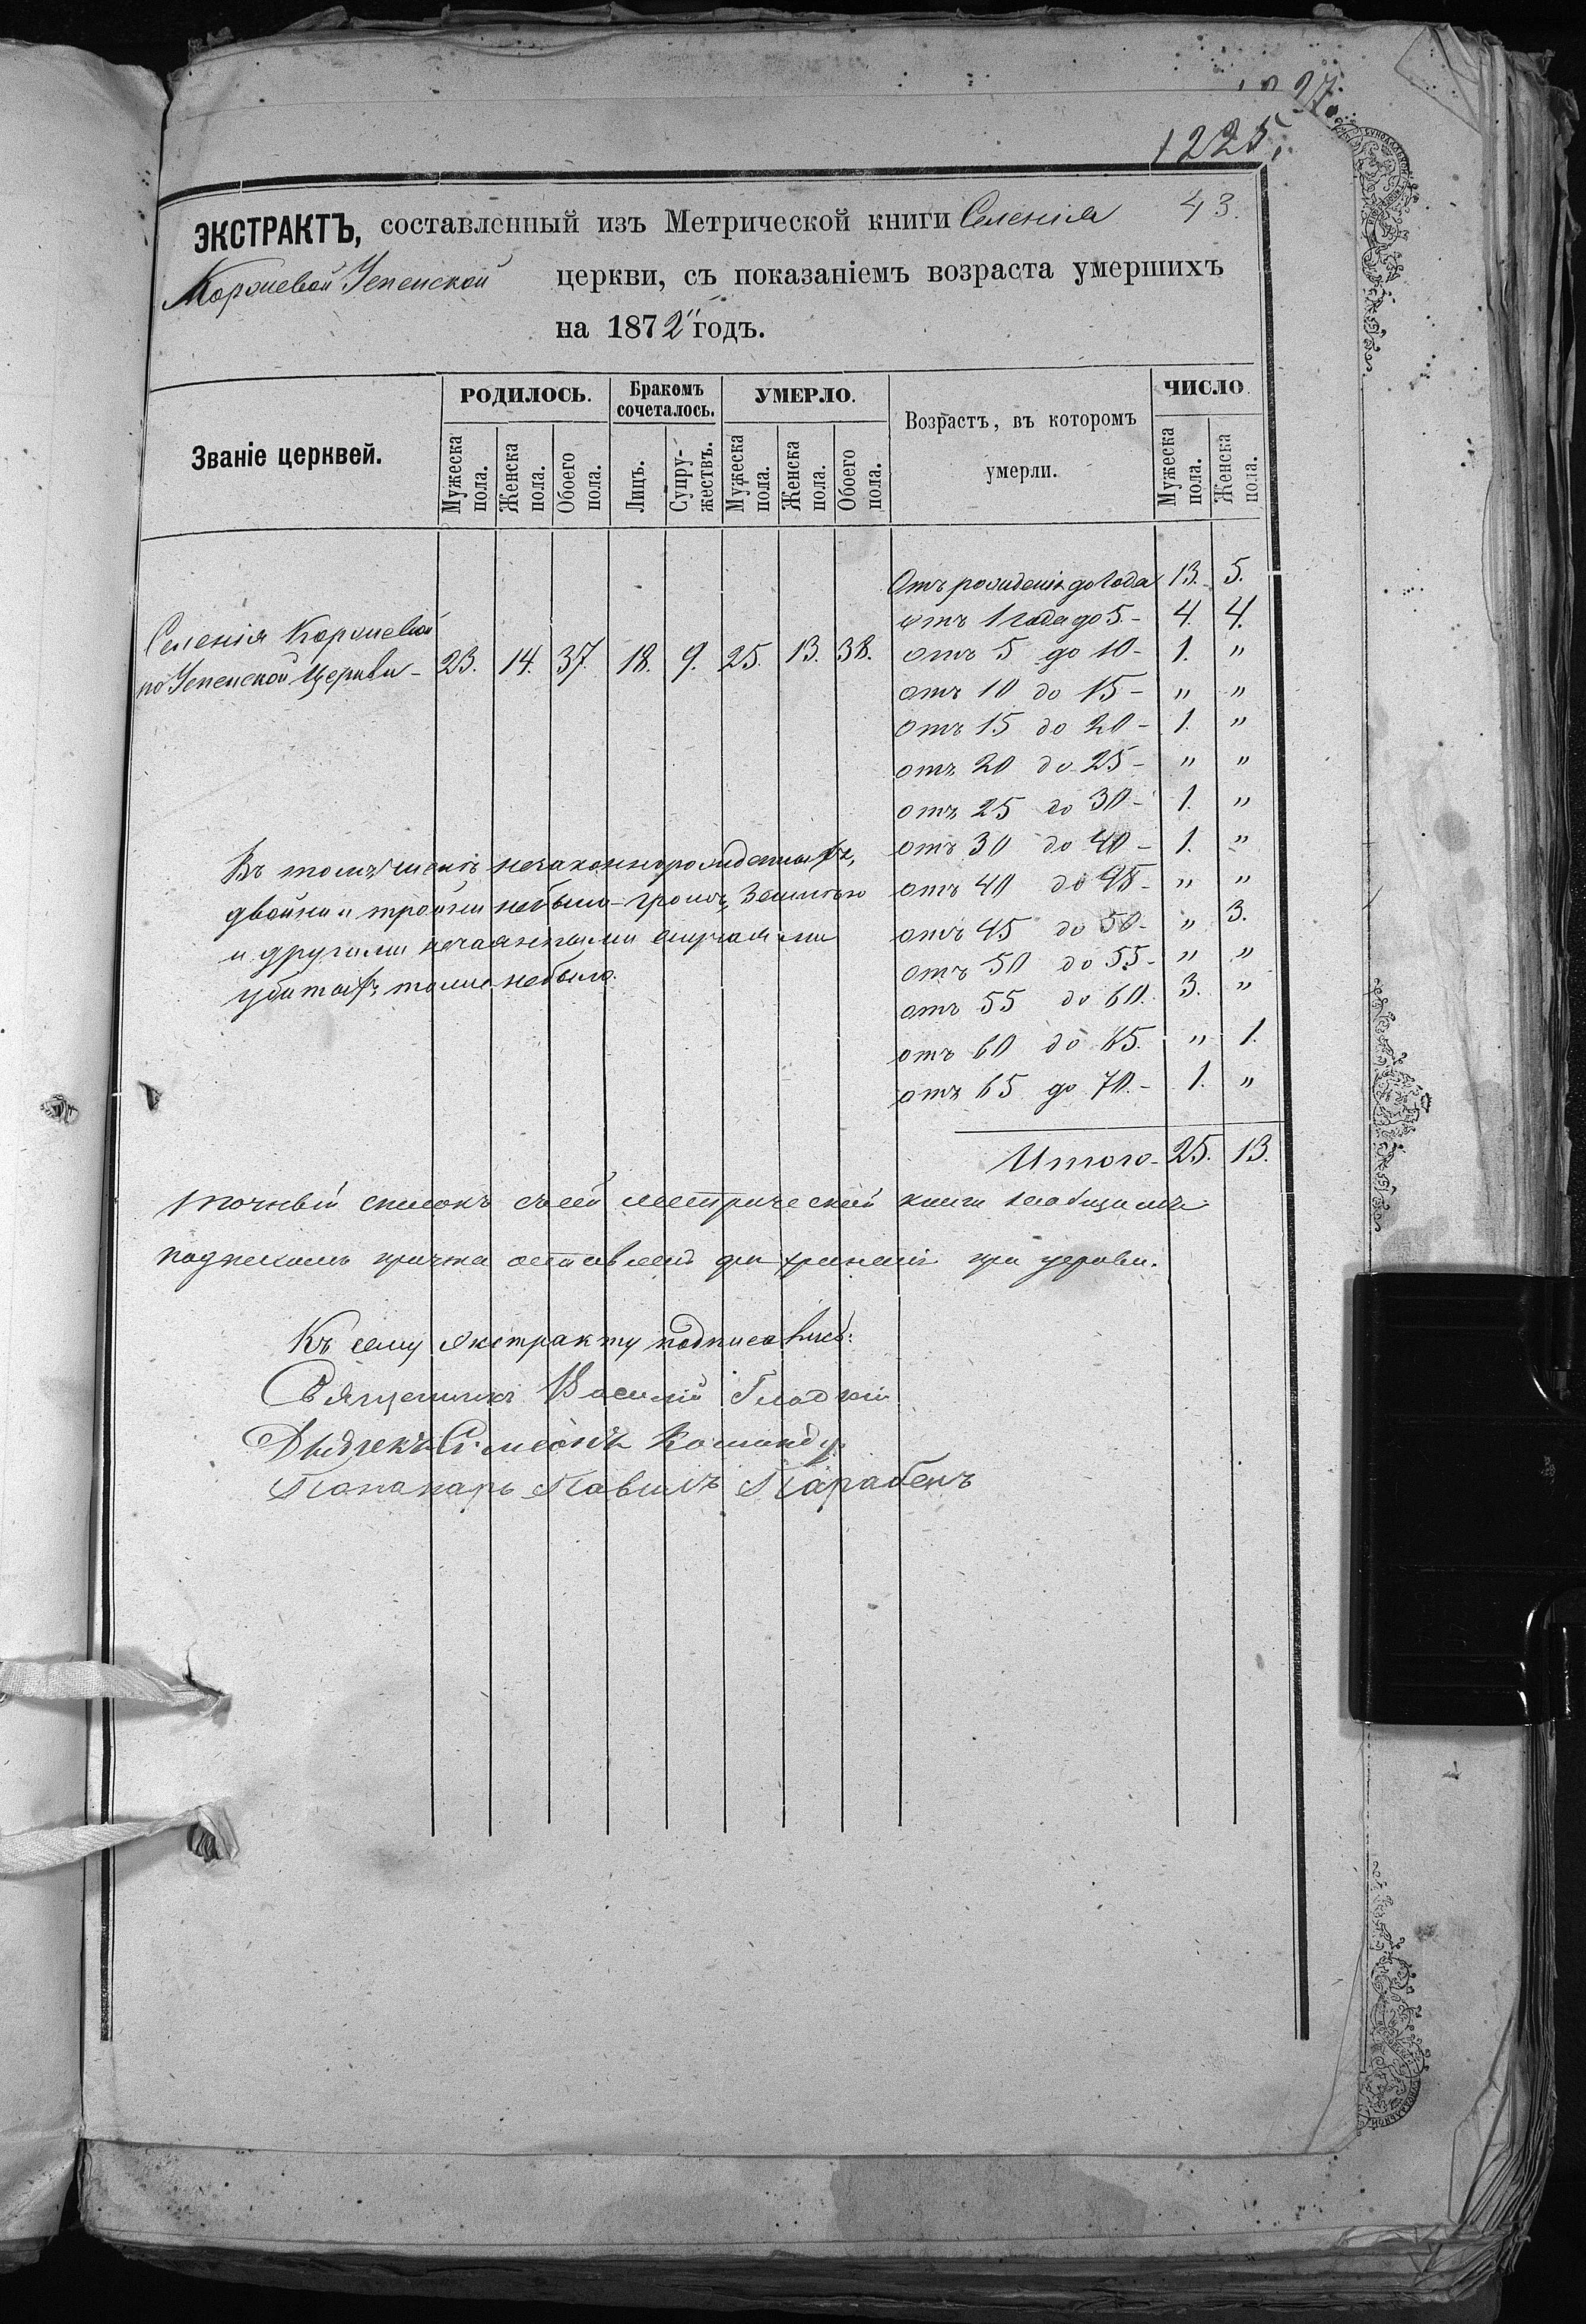 27.
1225.
43.
ЭКСТРАКТЪ, составленный изъ Метрической книги Селенія
Коржевой Успенской церкви, съ показаніемъ возраста умершихъ
на 1872 годъ.
Званіе церквей.
РОДИЛОСЬ.
Мужеска пола.
Женска пола.
Обоего пола.
Бракомъ сочеталось.
Лицъ.
Супружествъ.
УМЕРЛО.
Мужеска пола.
Женска пола.
Обоего пола.
Возрастъ, въ которомъ умерли.
ЧИСЛО.
Мужеска пола.
Женска пола.
Селенія Коржевой
по Успенской Церкви - 23. 14. 37. 18. 9. 25. 13. 38.
Отъ рожденія до 1 года 13. 5.
отъ 1 года до 5. - 4. 4.
отъ 5 до 10 - 1. "
отъ 10 до 15 - " "
отъ 15 до 20 - 1. "
отъ 20 до 25 - " "
отъ 25 до 30 - 1. "
отъ 30 до 40 - 1. "
отъ 40 до 45 - " "
отъ 45 до 50 - " 3.
отъ 50 до 55 - " "
отъ 55 до 60. 3. "
отъ 60 до 65. " 1.
отъ 65 до 70. - 1. "
Итого - 25. 13.
Въ томъ числѣ незаконнорожденныхъ,
двойни и тройни небыло - громомъ,
и другими нечаянными случаями
убитыхъ тоже небыло.
точный списокъ съ сей метрической книги
подписомъ причта оставленъ для храненія при церкви.
Къ сему экстракту подписались:
Священникъ Василій Гладкій
Дьячекъ Симеонъ
Пономарь Павелъ